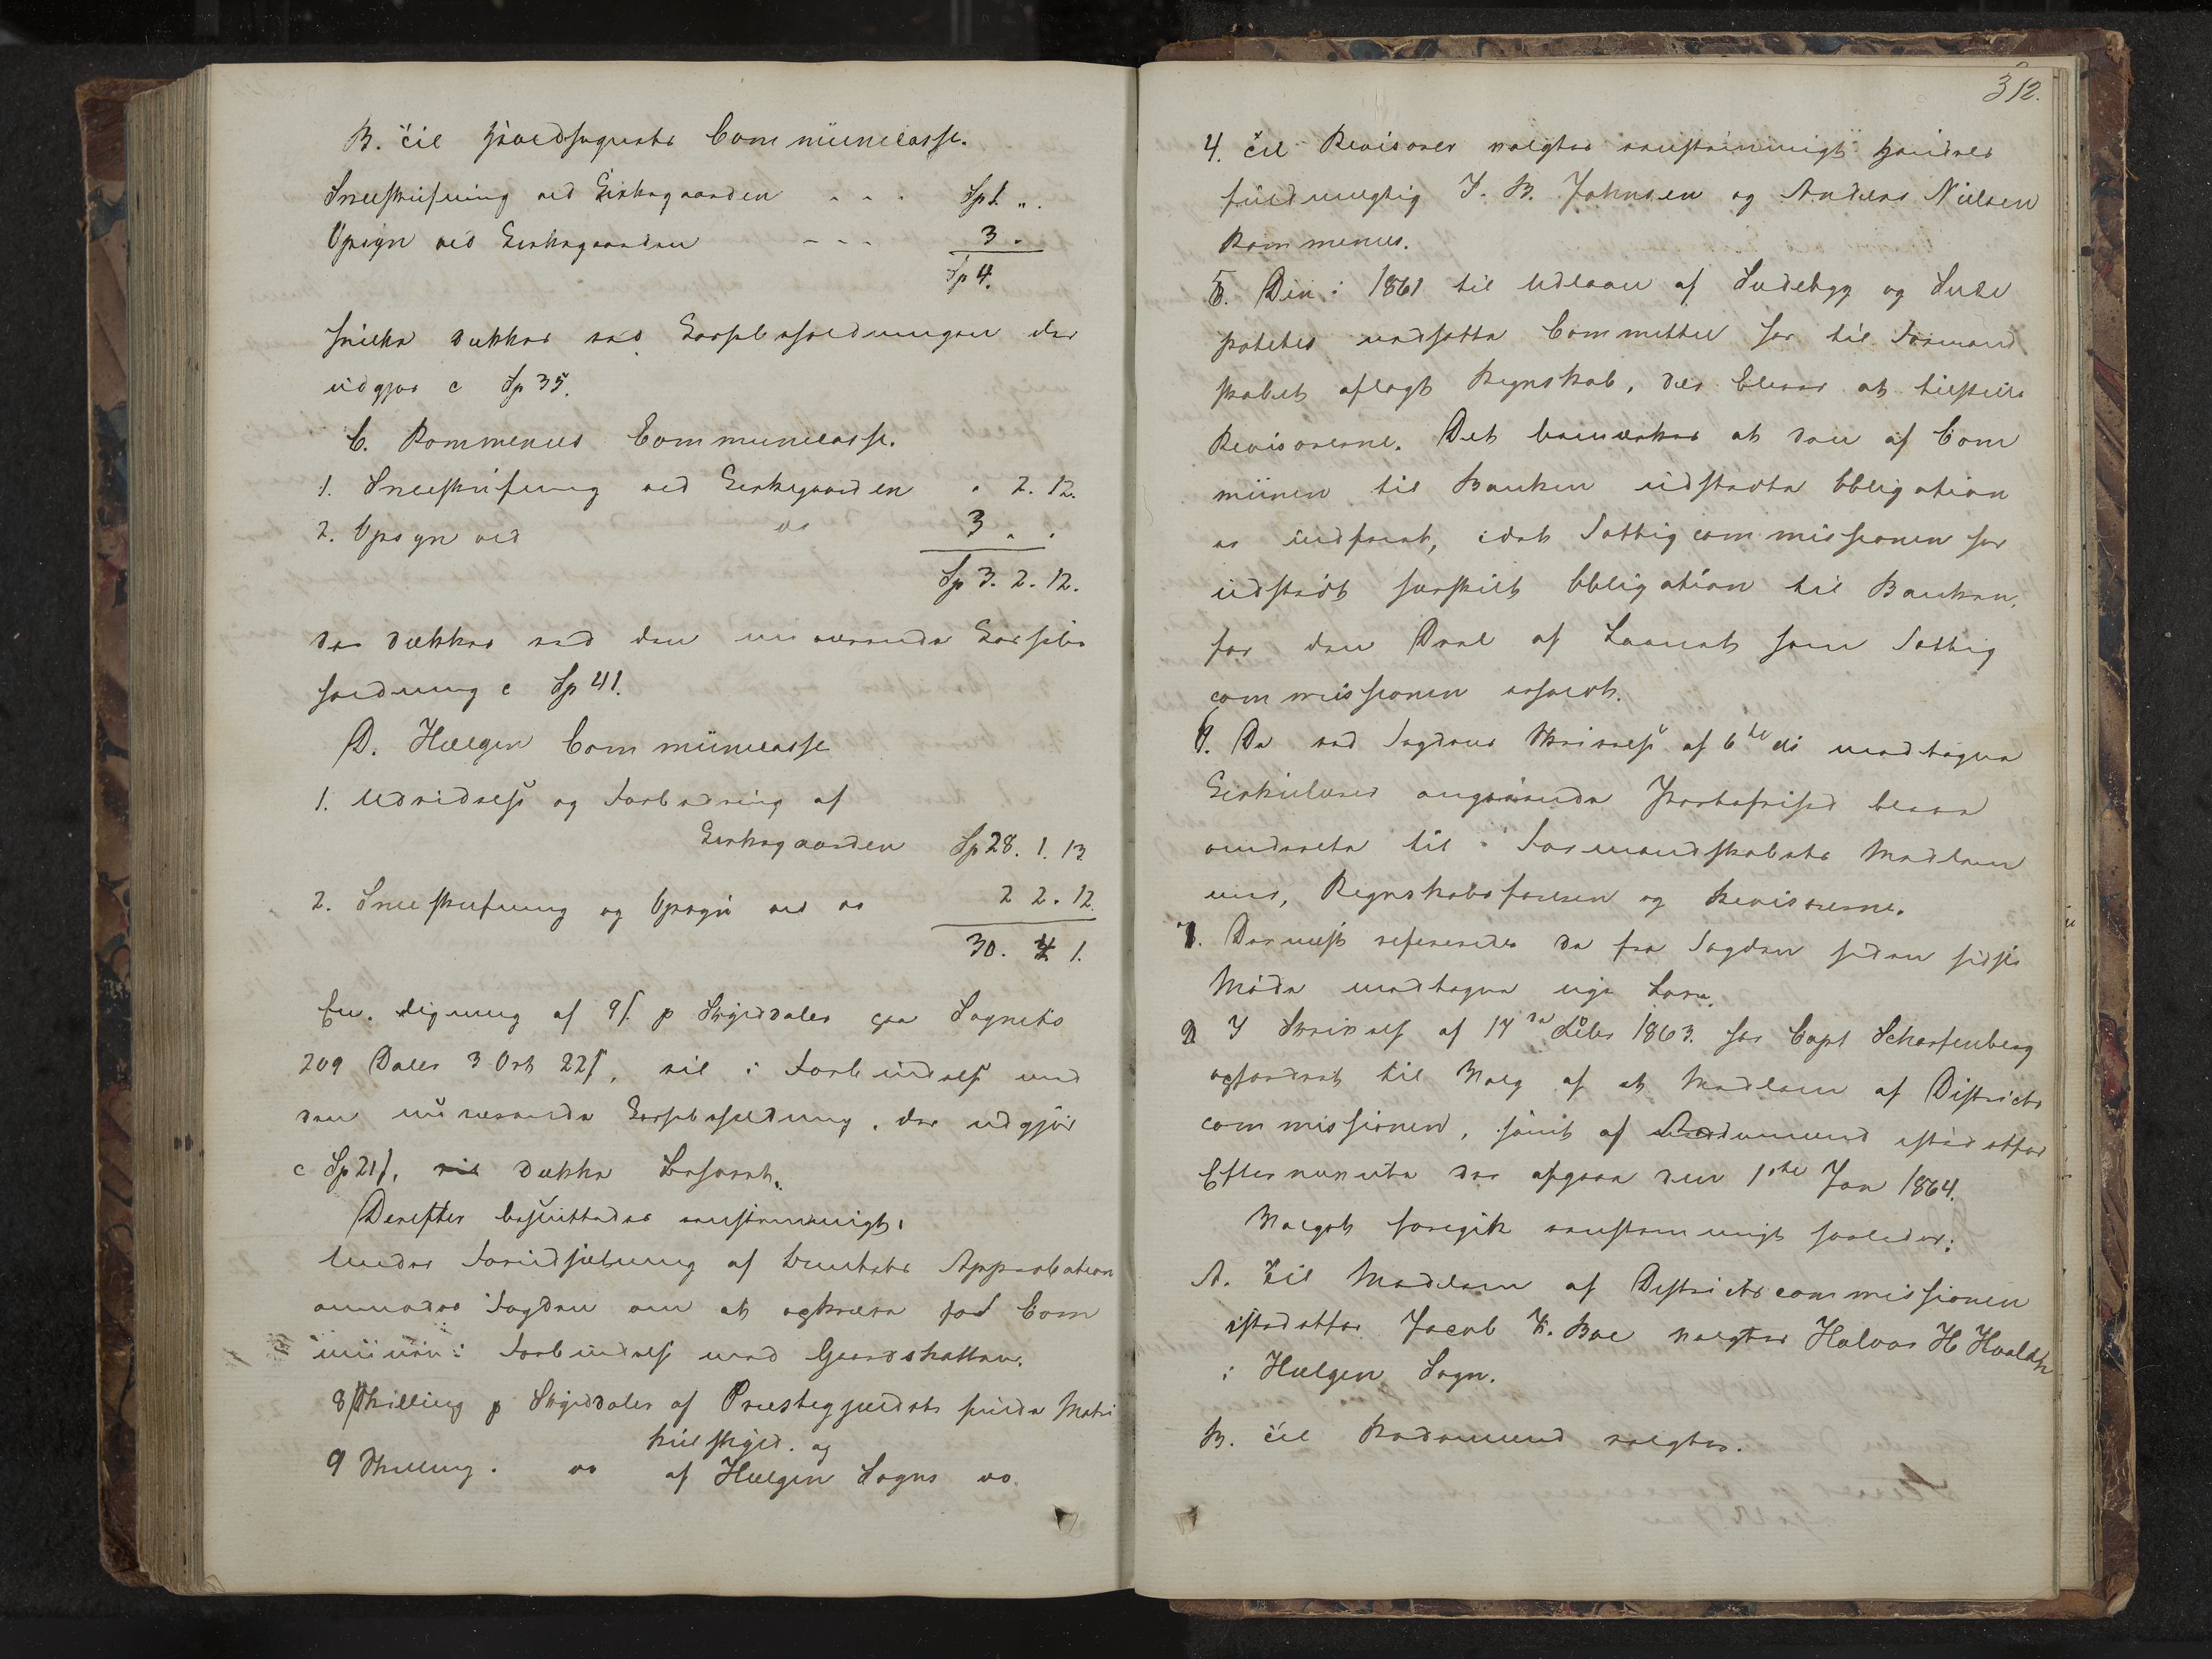 B. Til Hovedsognets Communecasse.
Sneeskufning ved Kirkegaarden - - - Sp 1. „.
Opsyn ved Kirkegaarden - - - 3.
Sp 4.
hvilke dækkes ved Korpsbesparelsen der
udgjør c Sp 35.
C. Rommenes Communecasse.
1. Sneeskufning ved Kirkegaarden „ 2. 12.
2. Opsyn ved do 3 „ „
Sp 3. 2. 12.
der dækkes ved den nu værende
c Sp 41.
D. Hælgen Communecasse
1. Udvidelse og Forbedring af
Kirkegaarden Sp 28. 1. 13
2. Sneeskufning og Opsyn ved do 2 2. 12.
30. 4 1.
En Ligning af 9ß p Skylddaler paa Sognets
209 Daler 3 Ort 22ß, vil i Forbindelse med
den nuværende der udgjør
c Sp 21ß, vil dække Behovet.
Derefter besluttedes eenstemmigt:
Under Forudsætning af Amtets Approbation
anmodes Fogden om at opkræve for Com
munen i Forbindelse med Gaardskatten.
8 Skilling p Skylddaler af Præstegjeldets fulde Matri
kulskyld. og
9 Skilling. do af Hælgen Sogns do.
312.
4. Til Revisorer valgtes eenstemmigt Handels
fuldmægtig J. B. Johnsen og Anders Nielsen
Rommenes.
5. Den i 1861 til Udlaan af Sædebyg og Sæde
poteter nedsatte Committee har til Formand
skabet aflagt Regnskab, der bliver at tilstille
Revisorerne. Det bemærkes at den af Com
munen til Banken udstædte Obligation
er indfriet, idet Fattigcommissionen har
udstædt særskilt Obligation til Banken,
for den Deel af Laanet som Fattig
commissionen
6. De ved Fogdens Skrivelse af 6te ds modtagne
Cirkulærer angaaende Portofrihed bleve
omdeelte til Formandskabets Medlem
mer, Regnskabsføreren og Revisorerne.
7. Dernæst refereredes de fra Fogden siden sidste
Møde modtagne nye Love.
8 I Skrivelse af 17de Debr 1863. har Capt Scharfenberg
opfordret til Valg af et Medlem af Districts
commissionen, samt af Rodemænd istedetfor
Efternævnte der afgaae den 1ste Jan 1864.
Valget foregik eenstemmigt saaledes:
A. Til Medlem af Districtscommissionen
istedetfor Jacob K. Boe valgtes Halvor H
i Hælgen Sogn.
B. Til Rodemænd valgtes.